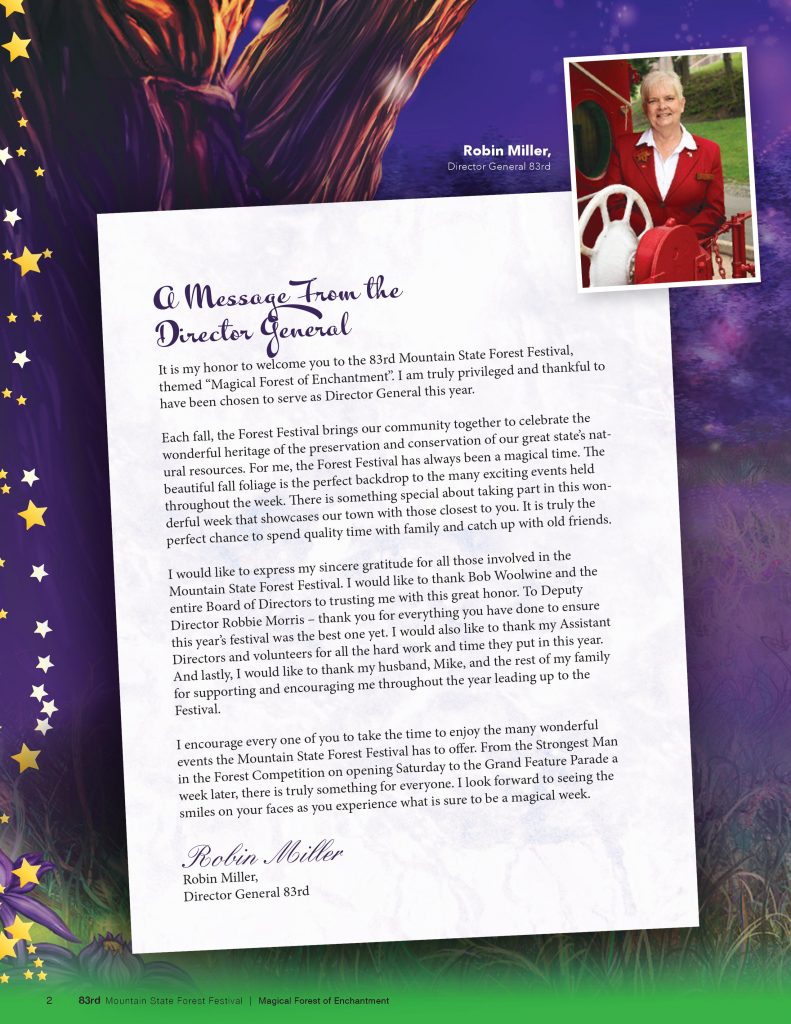 Robin Miller,
Director General 83rd
A Message From the
Director General
It is my honor to welcome you to the 83rd Mountain State Forest Festival,
themed “Magical Forest of Enchantment”. I am truly privileged and thankful to
have been chosen to serve as Director General this year.
Each fall, the Forest Festival brings our community together to celebrate the
wonderful heritage of the preservation and conservation of our great state’s nat-
ural resources. For me, the Forest Festival has always been a magical time. The
beautiful fall foliage is the perfect backdrop to the many exciting events held
throughout the week. There is something special about taking part in this won-
derful week that showcases our town with those closest to you. It is truly the
perfect chance to spend quality time with family and catch up with old friends.
I would like to express my sincere gratitude for all those involved in the
Mountain State Forest Festival. I would like to thank Bob Woolwine and the
entire Board of Directors to trusting me with this great honor. To Deputy
Director Robbie Morris – thank you for everything you have done to ensure
this year’s festival was the best one yet. I would also like to thank my Assistant
Directors and volunteers for all the hard work and time they put in this year.
And lastly, I would like to thank my husband, Mike, and the rest of my family
for supporting and encouraging me throughout the year leading up to the
Festival.
I encourage every one of you to take the time to enjoy the many wonderful
events the Mountain State Forest Festival has to offer. From the Strongest Man
in the Forest Competition on opening Saturday to the Grand Feature Parade a
week later, there is truly something for everyone. I look forward to seeing the
smiles on your faces as you experience what is sure to be a magical week.
Robin Miller
Robin Miller,
Director General 83rd
2 83rd Mountain State Forest Festival | Magical Forest of Enchantment